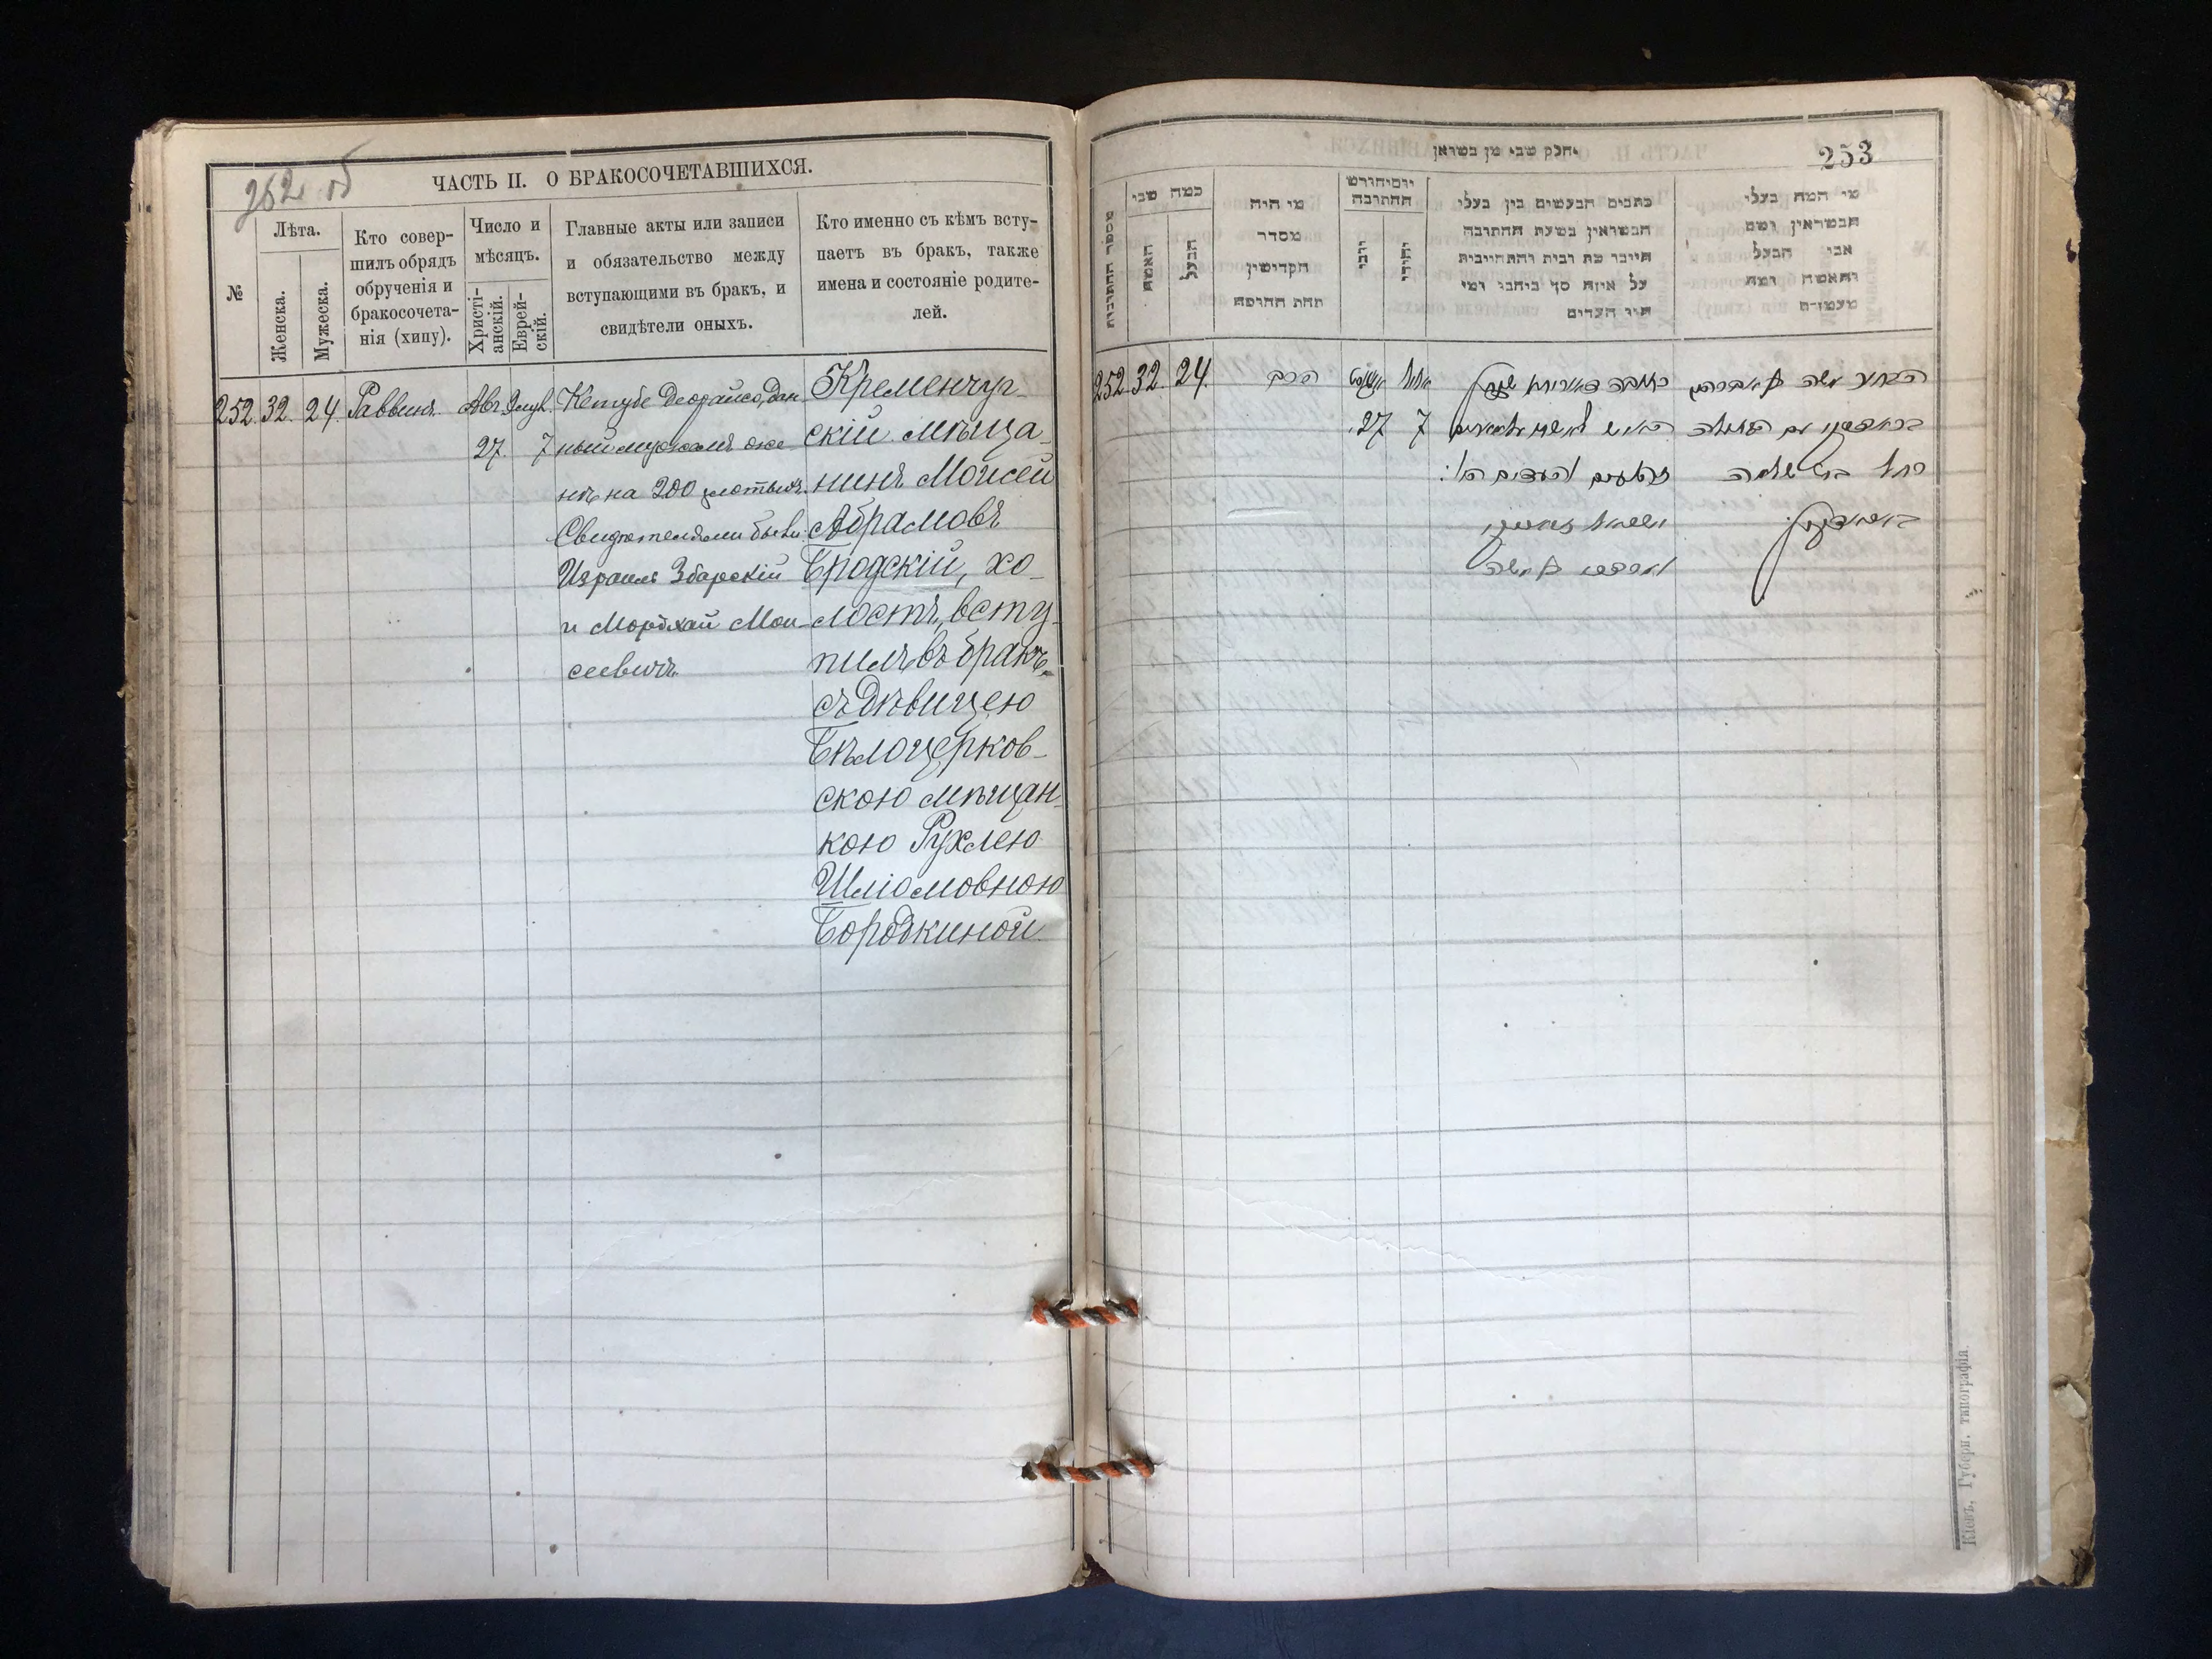 252 об
ЧАСТЬ II. О БРАКОСОЧЕТАВШИХСЯ.
№
Лѣта.
Женска.
Мужеска.
Кто совер-
шилъ обрядъ
обрученія и
бракосочета-
нія (хипу).
Число и
мѣсяцъ.
Христі-
анскій.
Еврей-
скій.
Главные акты или записи
и обязательство между
вступающими въ бракъ, и
свидѣтели оныхъ.
Кто именно съ кѣмъ всту-
паетъ въ бракъ, также
имена и состояніе родите-
лей.
252. 32. 24. Раввинъ. Авг. Элул.
27. 7
Кетубе Деорайсо, дан
ный мужемъ же
нѣ на 200 злотыхъ.
Свидѣтелями были:
Израиль Збарскій
и Мордхай Мои-
сеевичъ.
Кременчуг-
скій мѣща-
нинъ Моисей
Абрамовъ
Бродскій, хо-
лостъ, всту-
пилъ въ бракъ
съ дѣвицею
Бѣлоцерков-
скою мѣщан-
кою Рухлею
Шліомовною
Бородкиной
253
יחלק שני מן בשואין
מספר החתונות
כמה שני
האשה
הבעל
מי היה
מסדר
הקדישין
תחת החופה
יום וחודש
החתונה
נוצרי
יהודי
כתבים הנעשים בין בעלי
הנשואין בשעת החתונה
חיובר מת רבית והתחייבות
על איזה סך ביחבי ומי
היו העדים
מי המה בעלי
הנשואין ושם
אבי הבעל
והאשה ומה
מעמדם
252. 32. 24.
הרב
אויגוסט
27.
אלול
7
הבחור משה בן אברהם
בראדסקי עם הבתולה
רחל בת שלמה
באראדקין
כתובה דאורייתא
ישראל זבארסקי
מרדכי בן משה
Кіевъ, Губерн. типографія.